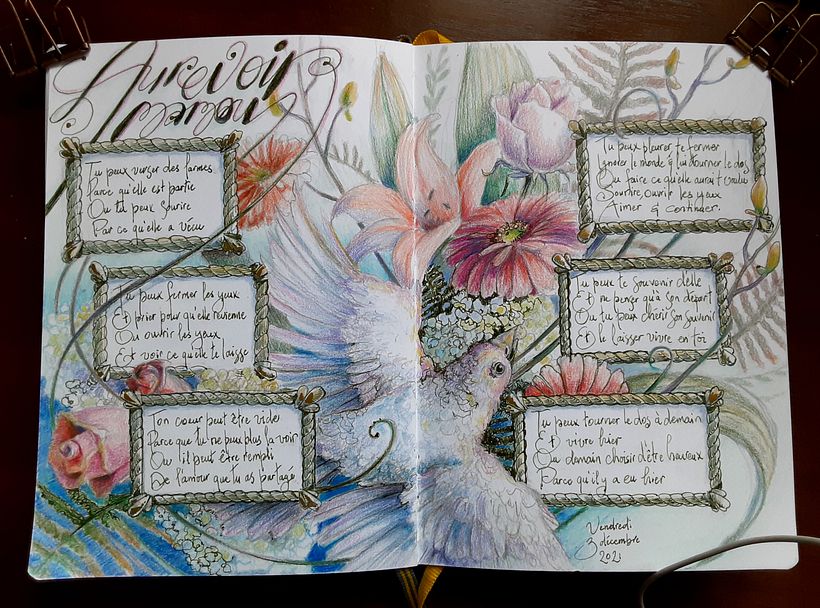 Aurevoir
Tu peux verser des larmes
Parce qu'elle est partie
Ou tu peux sourire
Par ce qu'elle a vécu
Tu peux fermer les yeux
Et prier pour qu'elle revienne
Ou ouvrir les yeux
Et voir ce qu'elle te laisse
Ton coeur peut être vide
Parce que tu ne peux plus la voir
Ou il peut être rempli
De l'amour que tu as partagé
Tu peux pleurer te fermer
Ignorer le monde & lui tourner le dos
Ou faire ce qu'elle aurait voulu
Sourire, ouvrir les yeux
Aimer & continuer.
Tu peux te souvenir d'elle
Et ne penser qu'à son départ
Ou tu peux chérir son souvenir
Et le laisser vivre en toi
Tu peux tourner le dos à demain
Et vivre hier
Ou demain choisir d'être heureux
Parce qu'il y a eu hier
Vendredi
3 décembre
2021